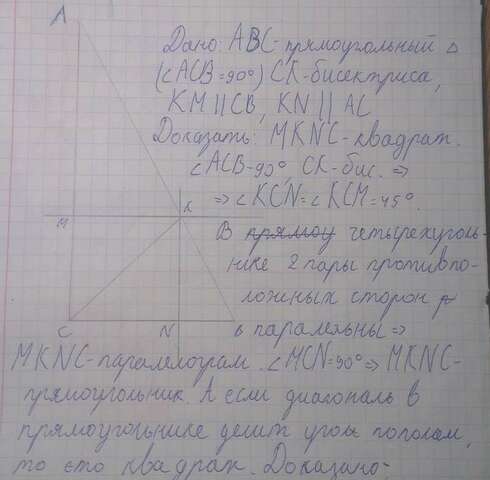 A
Дано: ABC-прямоугольный △
(∠ACB=90°) CK-бисектриса,
KM || CB, KN || AC
Доказать: MKNC-квадрат.
∠ACB=90°, CK-бис. ⇒
⇒ ∠KCN=∠KCM=45°.
M K
В прямоу четырехуголь-
нике 2 пары противопо-
ложных сторон р
C N B
паралельны ⇒
MKNC-паралелограм. ∠MCN=90° ⇒ MKNC-
прямоугольник. А если диагональ в
прямоугольнике делит угол пополам,
то это квадрат. Доказано.